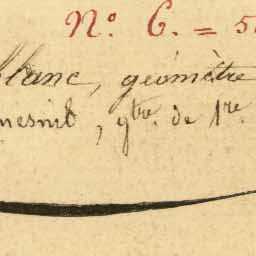 N.º 6. = 5
blanc, géomètre
mesnil, g.tre de 1re.